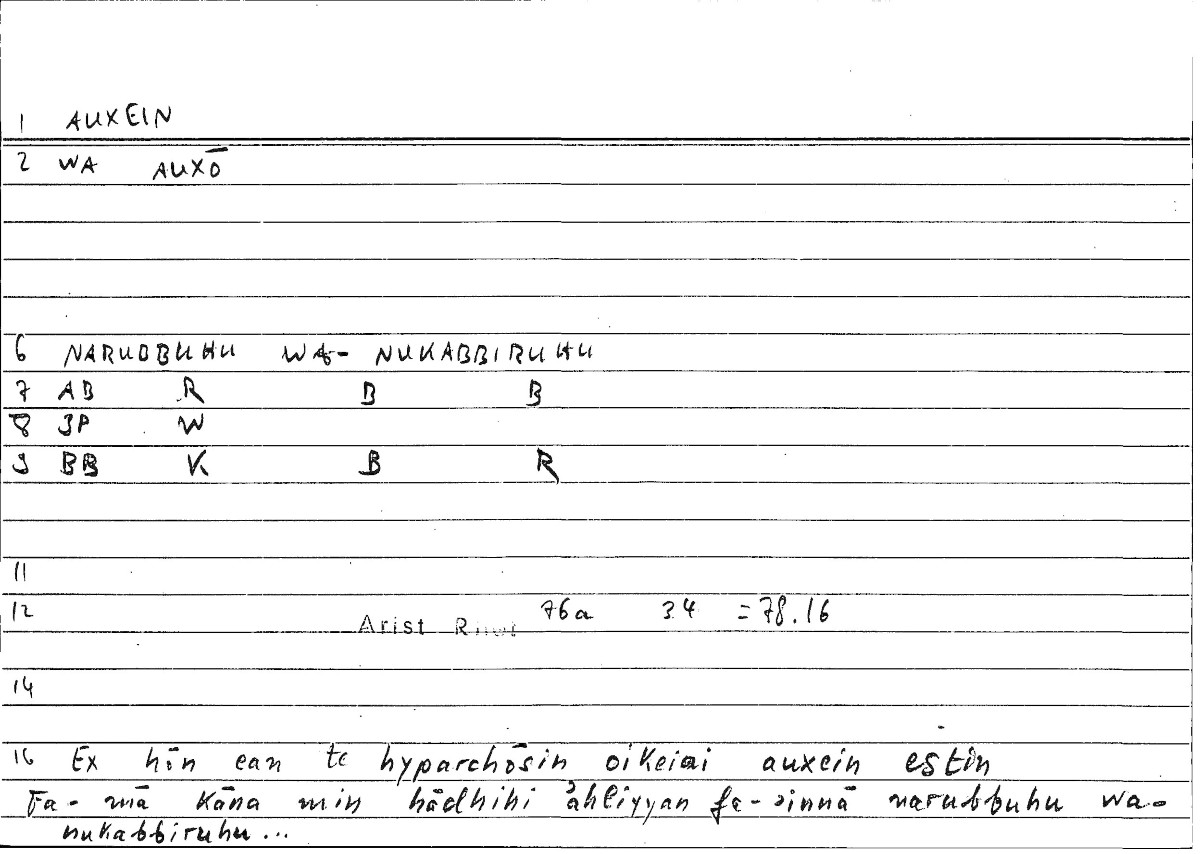 1 AUXEIN
2 WA AUXŌ
6 NARUBBUHU WA- NUKABBIRUHU
7 AB R B B
8 3P W
9 BB K B R
11
12 Arist Rhet 76a 34 = 78.16
14
16 Ex hōn ean te hyparchōsin oikeiai auxein estin
Fa- mā kāna min hādhihi ahliyyan fa-ʾinnā narubbuhu wa-
nukabbiruhu...